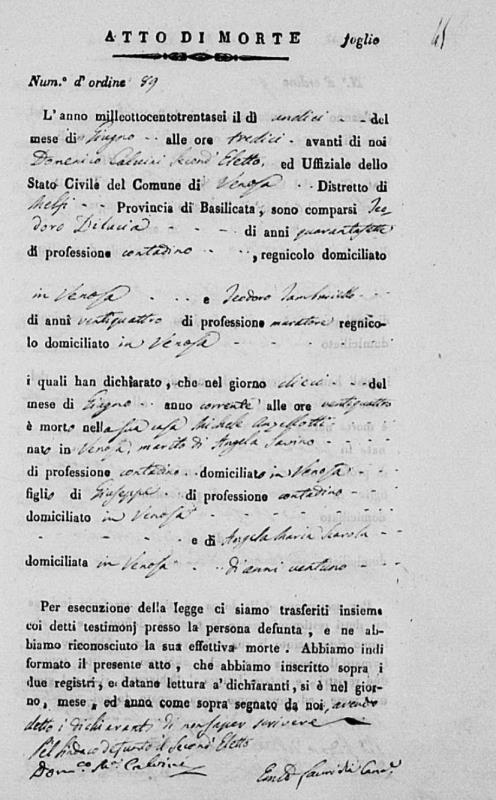 ATTO DI MORTE foglio 45
Num.° d'ordine 89
L'anno milleottocentotrentasei il dì undici del
mese di Giugno alle ore tredici avanti di noi
Domenico Calvini Second Eletto, ed Uffiziale dello
Stato Civile del Comune di Venosa Distretto di
Melfi Provincia di Basilicata, sono comparsi Teo-
doro Dilucia di anni quarantasette
di professione contadino, regnicolo domiciliato
in Venosa e Teodoro
di anni ventiquattro di professione muratore regnico-
lo domiciliato in Venosa
i quali han dichiarato, che nel giorno dieci del
mese di Giugno anno corrente alle ore ventiquattro
è morto nella sua casa Michele
nato in Venosa, marito di Angela Savino
di professione contadino domiciliato in Venosa
figlio di Giuseppe di professione contadino
domiciliato in Venosa
e di Angela Maria
domiciliata in Venosa di anni ventuno
Per esecuzione della legge ci siamo trasferiti insieme
coi detti testimonj presso la persona defunta, e ne ab-
biamo riconosciuto la sua effettiva morte. Abbiamo indi
formato il presente atto, che abbiamo inscritto sopra i
due registri, e datane lettura a' dichiaranti, si è nel gior-
no, mese, ed anno come sopra segnato da noi, avendo
detto i dichiaranti di non saper scrivere
Pel Sindaco defunto il Second Eletto
Dom.co Calvini